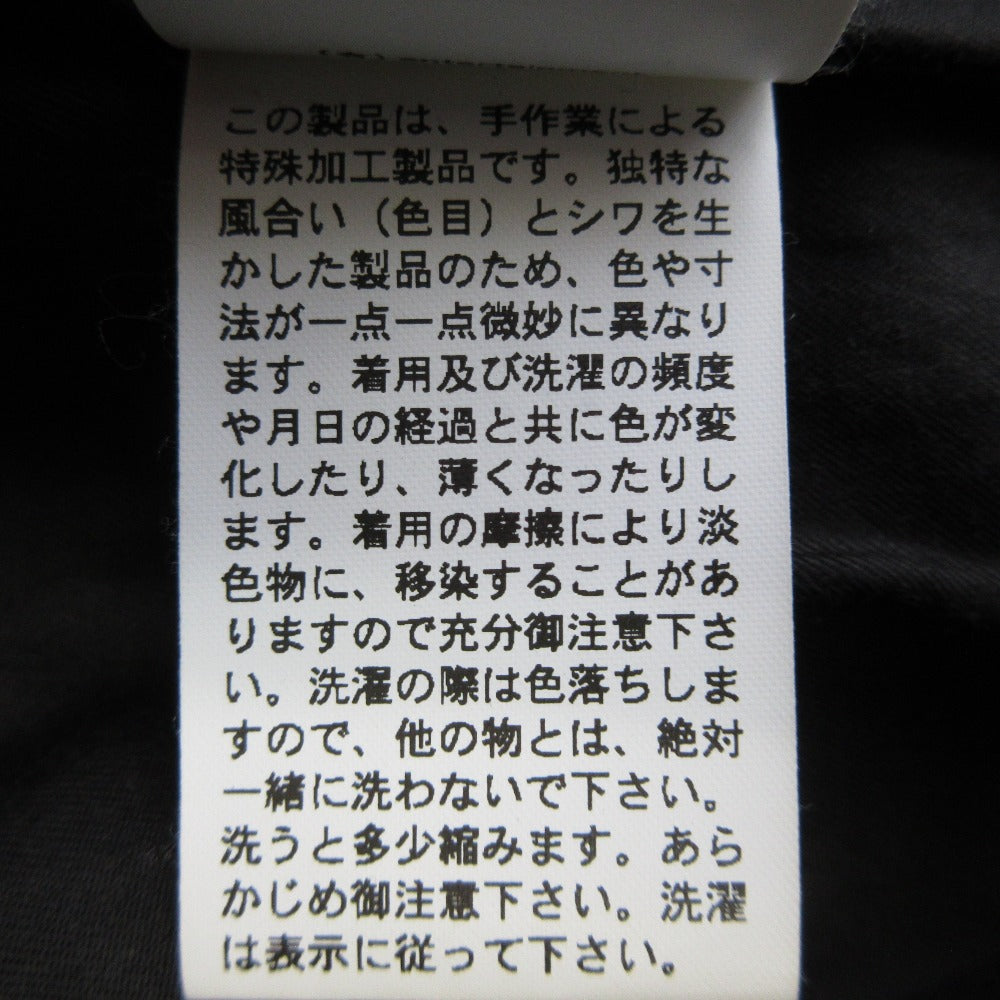 この製品は、手作業による
特殊加工製品です。独特な
風合い（色目）とシワを生
かした製品のため、色や寸
法が一点一点微妙に異なり
ます。着用及び洗濯の頻度
や月日の経過と共に色が変
化したり、薄くなったりし
ます。着用の摩擦により淡
色物に、移染することがあ
りますので充分御注意下さ
い。洗濯の際は色落ちしま
すので、他の物とは、絶対
一緒に洗わないで下さい。
洗うと多少縮みます。あら
かじめ御注意下さい。洗濯
は表示に従って下さい。